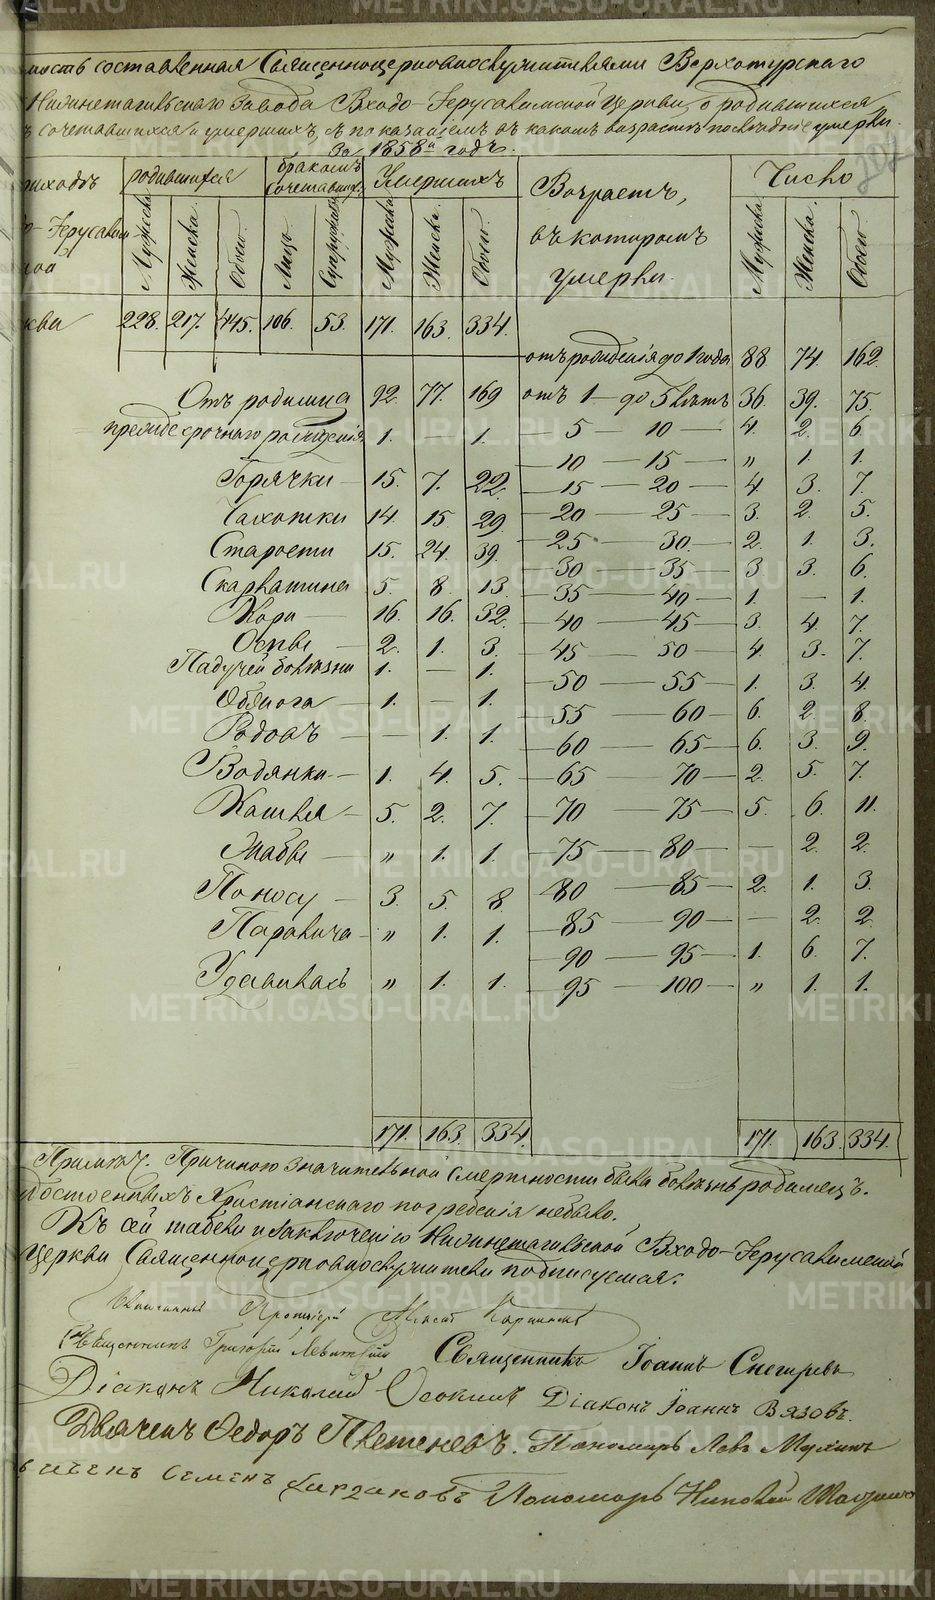 METRIKI.GASO-URAL.RU
ность составленная Священноцерковнослужителями Верхотурскаго
Нижнетагильскаго Завода Входо-Іерусалимской Церкви, о родившихся
сочетавшихся и умершихъ, съ показаніемъ въ какомъ возрасте последніе умерли.
За 1858й годъ.
приходъ родившихся бракомъ сочетавших. Умершихъ Возрастъ, въ которомъ умерли. Число
о-Іерусалимской Мужеска Женска. Обоего Лицъ Супружествъ Мужеска Женска. Обоего Мужеска. Женска. Обоего
ква 228. 217. 445. 106. 53. 171. 163. 334.
отъ рожденія до 1 года 88 74. 162.
Отъ родимца 92. 77. 169 отъ 1 — до 5 летъ 36. 39. 75.
прежде срочнаго рожденія 1. — 1. 5 — 10 — 4. 2. 6
10 — 15 — „ 1. 1.
Горячки 15. 7. 22. 15 — 20 — 4. 3. 7.
Чахотки 14. 15. 29 20 — 25 — 3. 2. 5.
Старости 15. 24. 39. 25 — 30. — 2. 1. 3.
30 — 35 — 3 3. 6.
Скарлатина 5. 8. 13. 35 — 40 — 1. — 1.
Кори 16. 16. 32. 40 — 45 — 3. 4. 7.
Оспы 2. 1. 3. 45 — 50 — 4. 3. 7.
Падучей болезни 1. — 1. 50 — 55 — 1. 3. 4.
Обжога 1. — 1. 55 — 60 — 6. 2. 8.
Родовъ — 1. 1. 60 — 65 — 6. 3. 9.
Водянки 1. 4. 5. 65 — 70 — 2. 5. 7.
Кашля 5. 2. 7. 70 — 75 — 5. 6. 11.
Жабы „ 1. 1. 75 — 80 — — 2. 2.
Поносу 3. 5. 8. 80 — 85 — 2. 1. 3.
85 — 90 — — 2. 2.
Паралича „ 1. 1. 90 — 95 — 1. 6. 7.
Удавилась „ 1. 1. 95 — 100 — „ 1. 1.
171. 163. 334. 171. 163. 334.
Примеч. Причиною значительной смертности была болезнь родимецъ.
достоенныхъ Христіанскаго погребенія небыло.
Къ сей табели и заключенію Нижнетагильской Входо-Іерусалимской
Церкви Священноцерковнослужители подписуемся:
Протоіерей
Священникъ Григорій Левитскій Священникъ Іоаннъ Снегиревъ
Діаконъ Николай Осокинъ Діаконъ Іоаннъ Вязовъ.
Дьячекъ Федоръ Пветеневъ. Пономарь Левъ Мухинъ
Семенъ Пономарь Николай